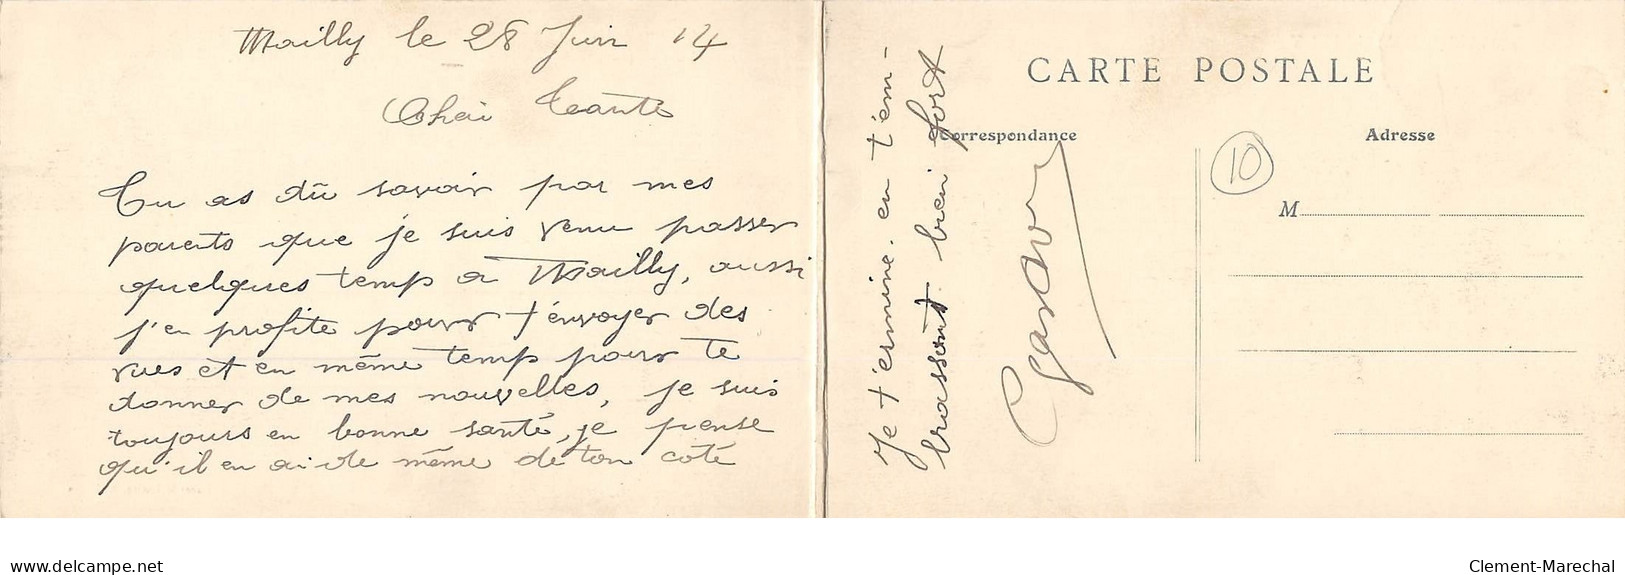 Mailly le 28 Juin 14
Cher Tante
Tu as dû savoir par mes
parents que je suis venu passer
quelques temp a Mailly, aussi
j'en profite pour t'envoyer des
vues et en même temp pour te
donner de mes nouvelles, je suis
toujours en bonne santé, je pense
qu'il en ai de même de ton coté
Je termine. en t'em-
brassant bien fort
Gaston
CARTE POSTALE
Correspondance
Adresse
10
M
www.delcampe.net
Clement-Marechal